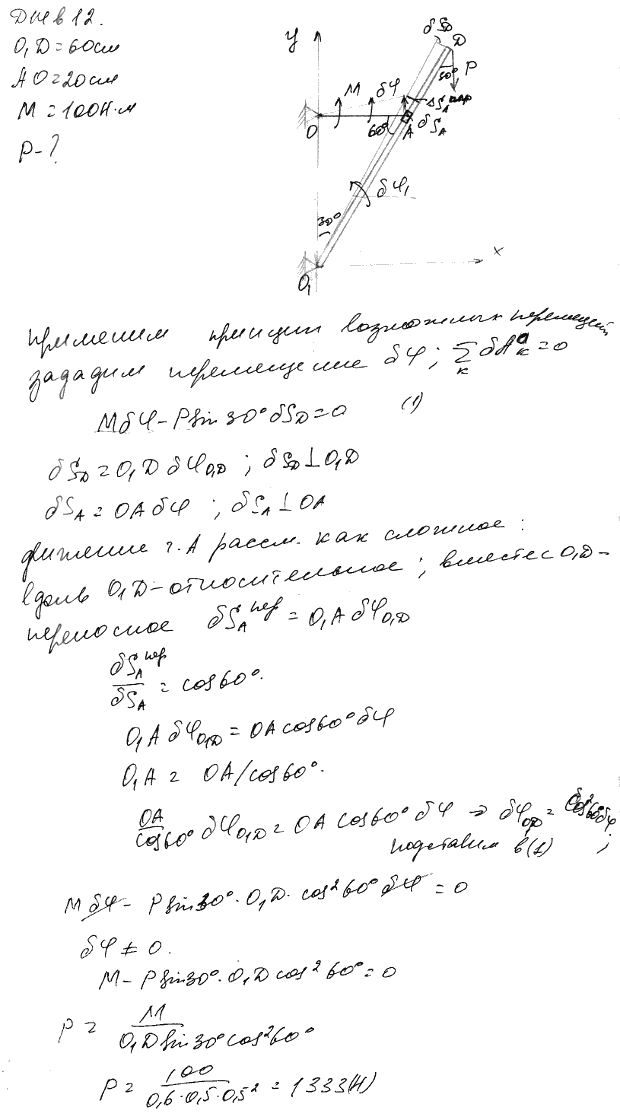 O₁D = 60см
AO = 20см
M = 100Н·м
P - ?
y
δS_D
D
30°
P
M
δφ
δS_A^пер
O
60°
A
δS_A
δφ₁
30°
x
O₁
Применим принцип возможных перемещ.
зададим перемещение δφ; Σ_к δA_к^a = 0
Mδφ - P sin 30° δS_D = 0 (1)
δS_D = O₁D δφ_O₁D ; δS_D ⊥ O₁D
δS_A = OA δφ ; δS_A ⊥ OA
движение т. A рассм. как сложное:
вдоль O₁D - относительное; вместе с O₁D -
переносное δS_A^пер = O₁A δφ_O₁D
δS_A^пер / δS_A = cos 60°.
O₁A δφ_O₁D = OA cos 60° δφ
O₁A = OA / cos 60°.
OA / cos 60° δφ_O₁D = OA cos 60° δφ ⇒ δφ_O₁D = cos² 60° δφ ;
подставим в (1)
M δφ - P sin 30° · O₁D · cos² 60° δφ = 0
δφ ≠ 0.
M - P sin 30° · O₁D cos² 60° = 0
P = M / O₁D sin 30° cos² 60°
P = 100 / 0,6 · 0,5 · 0,5² = 1333(Н)